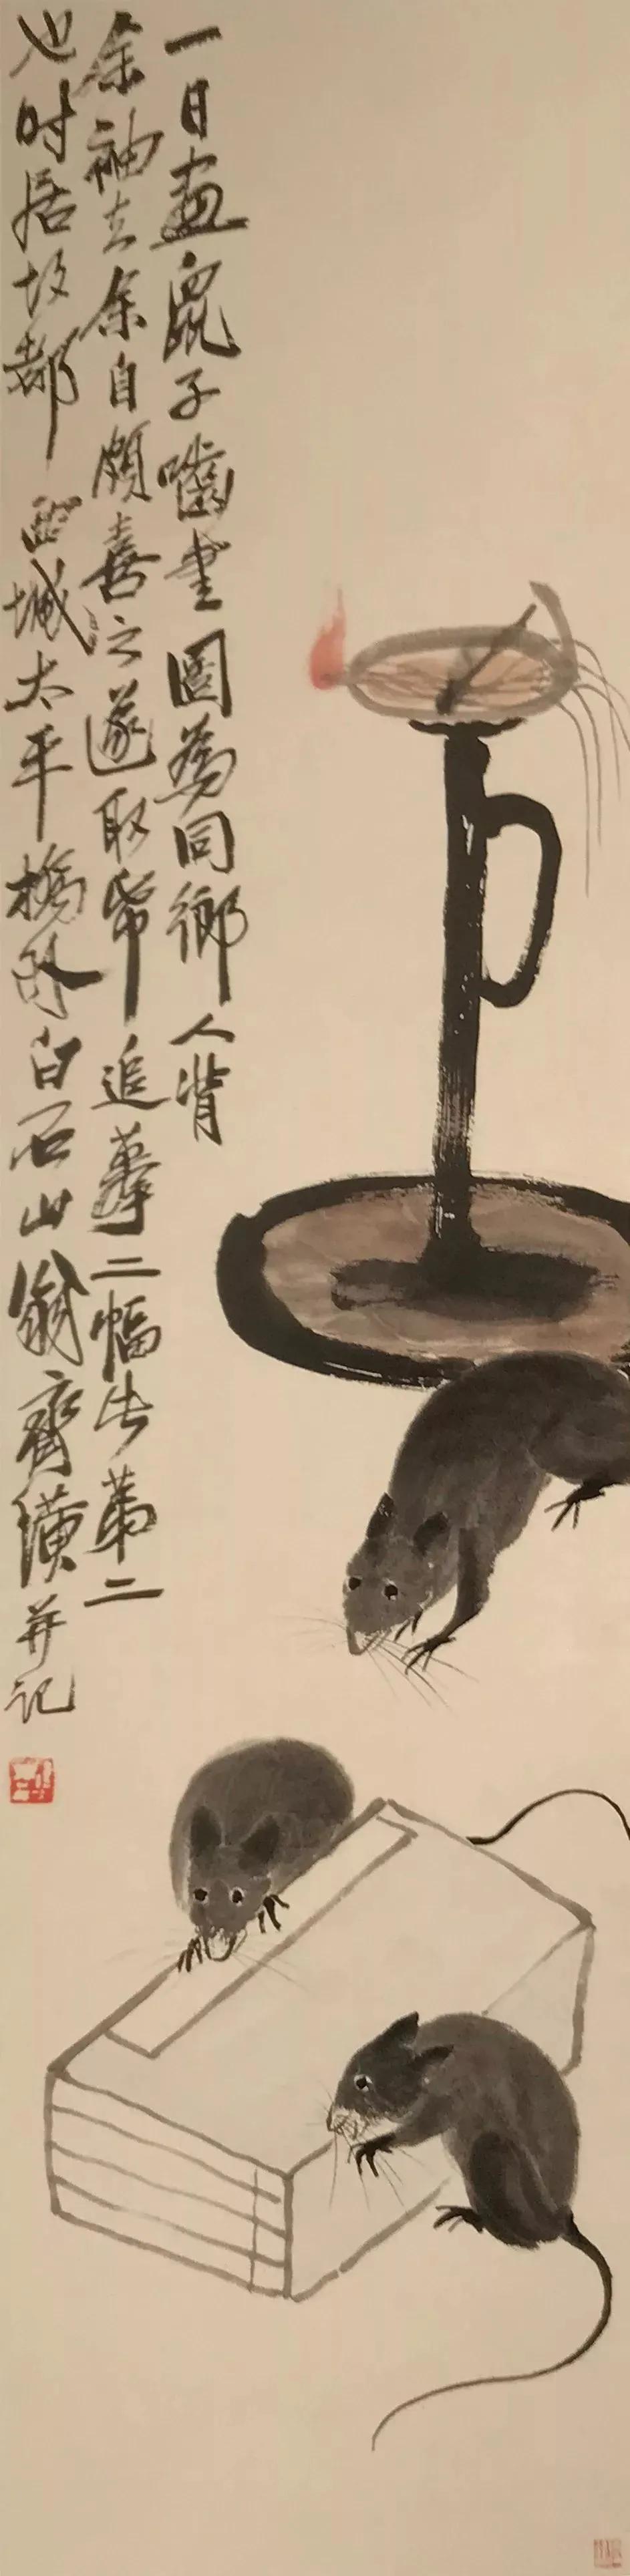 一日畫鼠子嚙書圖為同鄉人背
余袖去余自頗喜之遂取帋追摹二幅此第二
也时居故都西城太平橋外白石山翁齊璜并記